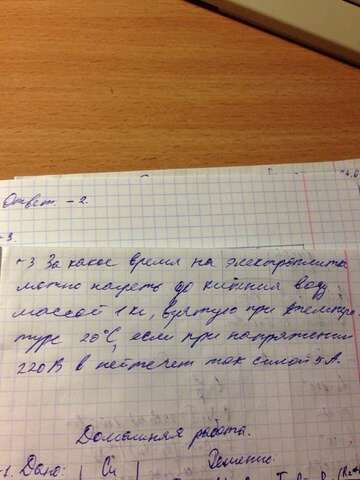 Ответ - 2.
3.
~3 За какое время на электроплитке
можно нагреть до кипения воду
массой 1 кг, взятую при температуре
туре 20°С, если при напряжении
220 В в ней течет ток силой 5А.
Домашняя работа.
1. Дано: Си Решение: